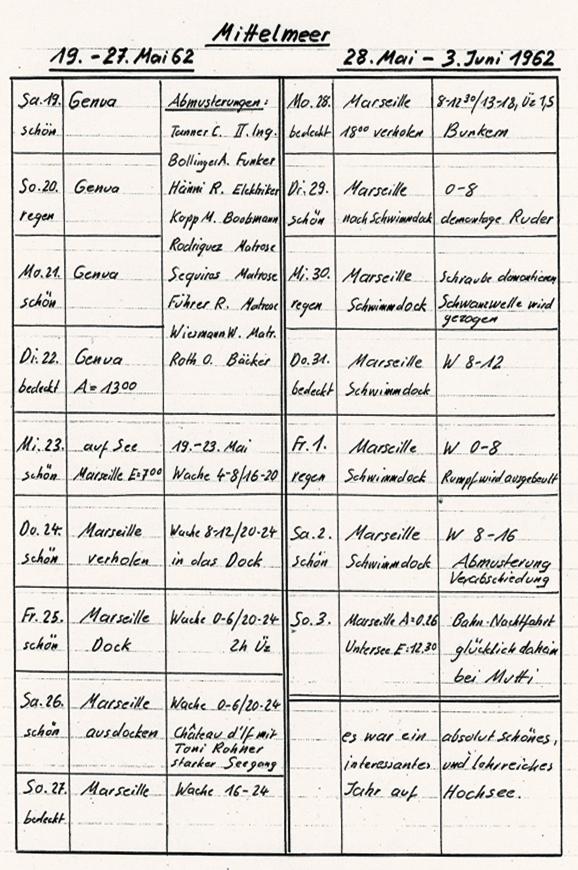 Mittelmeer
19. - 27. Mai 62
28. Mai - 3. Juni 1962
Sa. 19. Genua Abmusterungen:
schön Tanner C. II. Ing.
Bollinger A. Funker
So. 20. Genua Hänni R. Elektriker
regen Kopp M. Bootsmann
Rodriguez Matrose
Mo. 21. Genua Sequiros Matrose
schön Führer R. Matrose
Wiesmann W. Matr.
Di. 22. Genua Roth O. Bäcker
bedeckt A = 13⁰⁰
Mi. 23. auf See 19. - 23. Mai
schön Marseille E = 7⁰⁰ Wache 4-8/16-20
Do. 24. Marseille Wache 8-12/20-24
schön verholen in das Dock
Fr. 25. Marseille Wache 0-6/20-24
schön Dock 2h Üz
Sa. 26. Marseille Wache 0-6/20-24
schön ausdocken Château d'If mit
Toni Rohner
starker Seegang
So. 27. Marseille Wache 16-24
bedeckt
Mo. 28. Marseille 8-12³⁰/13-18, Üz 1,5
bedeckt 18⁰⁰ verholen Bunkern
Di. 29. Marseille 0-8
schön nach Schwimmdock demontage Ruder
Mi. 30. Marseille Schraube demontieren
regen Schwimmdock Schwanzwelle wird
gezogen
Do. 31. Marseille W 8-12
bedeckt Schwimmdock
Fr. 1. Marseille W 0-8
regen Schwimmdock Rumpf wird ausgebeult
Sa. 2. Marseille W 8-16
schön Schwimmdock Abmusterung
Verabschiedung
So. 3. Marseille A = 0.26 Bahn-Nachtfahrt
Untersee E = 12.30 glücklich daheim
bei Mutti
es war ein absolut schönes,
interessantes und lehrreiches
Jahr auf Hochsee.